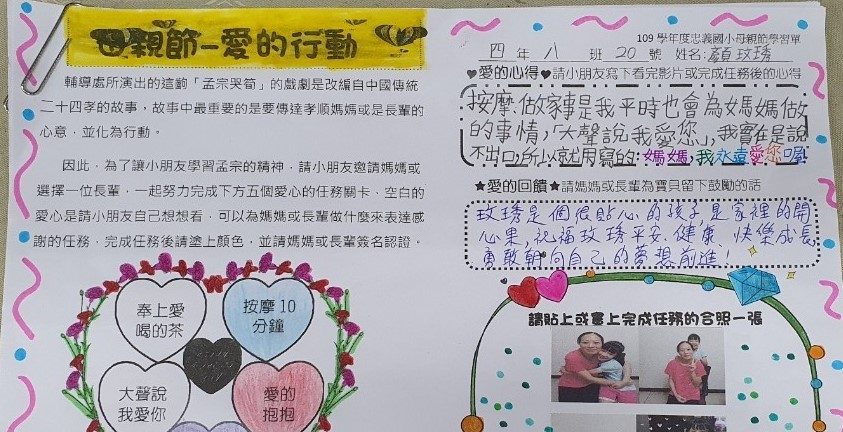 母親節–愛的行動
輔導處所演出的這齣「孟宗哭筍」的戲劇是改編自中國傳統
二十四孝的故事，故事中最重要的是要傳達孝順媽媽或是長輩的
心意，並化為行動。
因此，為了讓小朋友學習孟宗的精神，請小朋友邀請媽媽或
選擇一位長輩，一起努力完成下方五個愛心的任務關卡、空白的
愛心是請小朋友自己想想看，可以為媽媽或長輩做什麼來表達感
謝的任務，完成任務後請塗上顏色，並請媽媽或長輩簽名認證。
奉上愛
喝的茶
按摩 10
分鐘
大聲說
我愛你
愛的
抱抱
109 學年度忠義國小母親節學習單
四 年 八 班 20 號 姓名:顏玟琇
♥愛的心得♥請小朋友寫下看完影片或完成任務後的心得
按摩、做家事是我平時也會為媽媽做
的事情，「大聲說我愛您」，我實在是說
不出口，所以就用寫的:媽媽，我永遠愛您喔
★愛的回饋★請媽媽或長輩為寶貝留下鼓勵的話
玟琇是個很貼心的孩子，是家裡的開
心果，祝福玟琇平安、健康、快樂成長，
勇敢朝向自己的夢想前進！
請貼上或畫上完成任務的合照一張